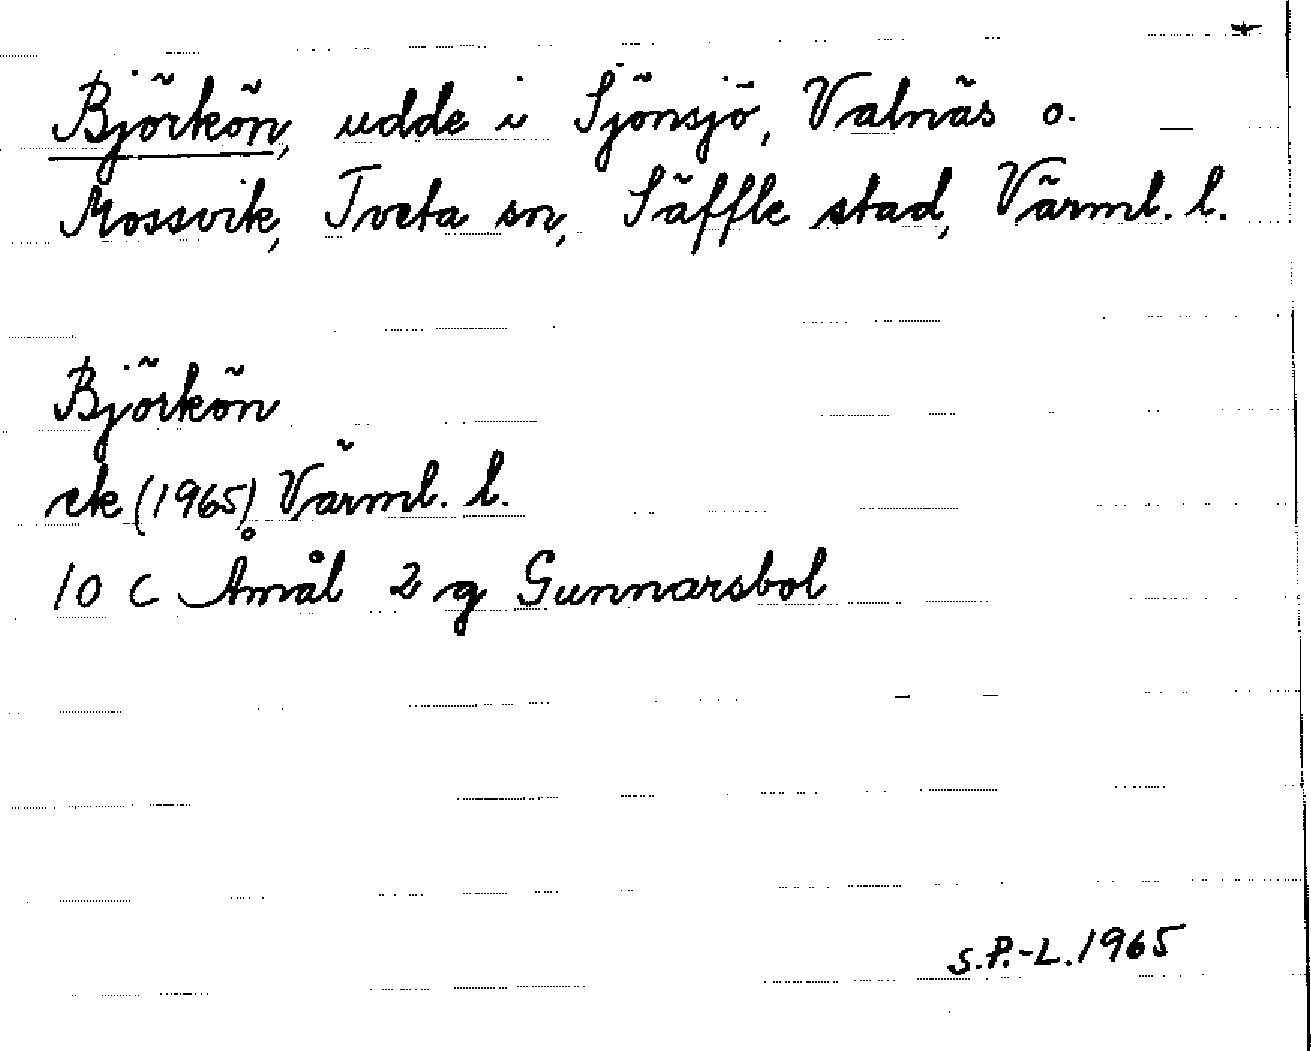 Björkön, udde i Sjönsjö, Valnäs o.
Mossvik, Tveta sn, Säffle stad, Värml. l.
Björkön
ek (1965) Värml. l.
10 C Åmål 2 g Gunnarsbol
S.P.-L. 1965